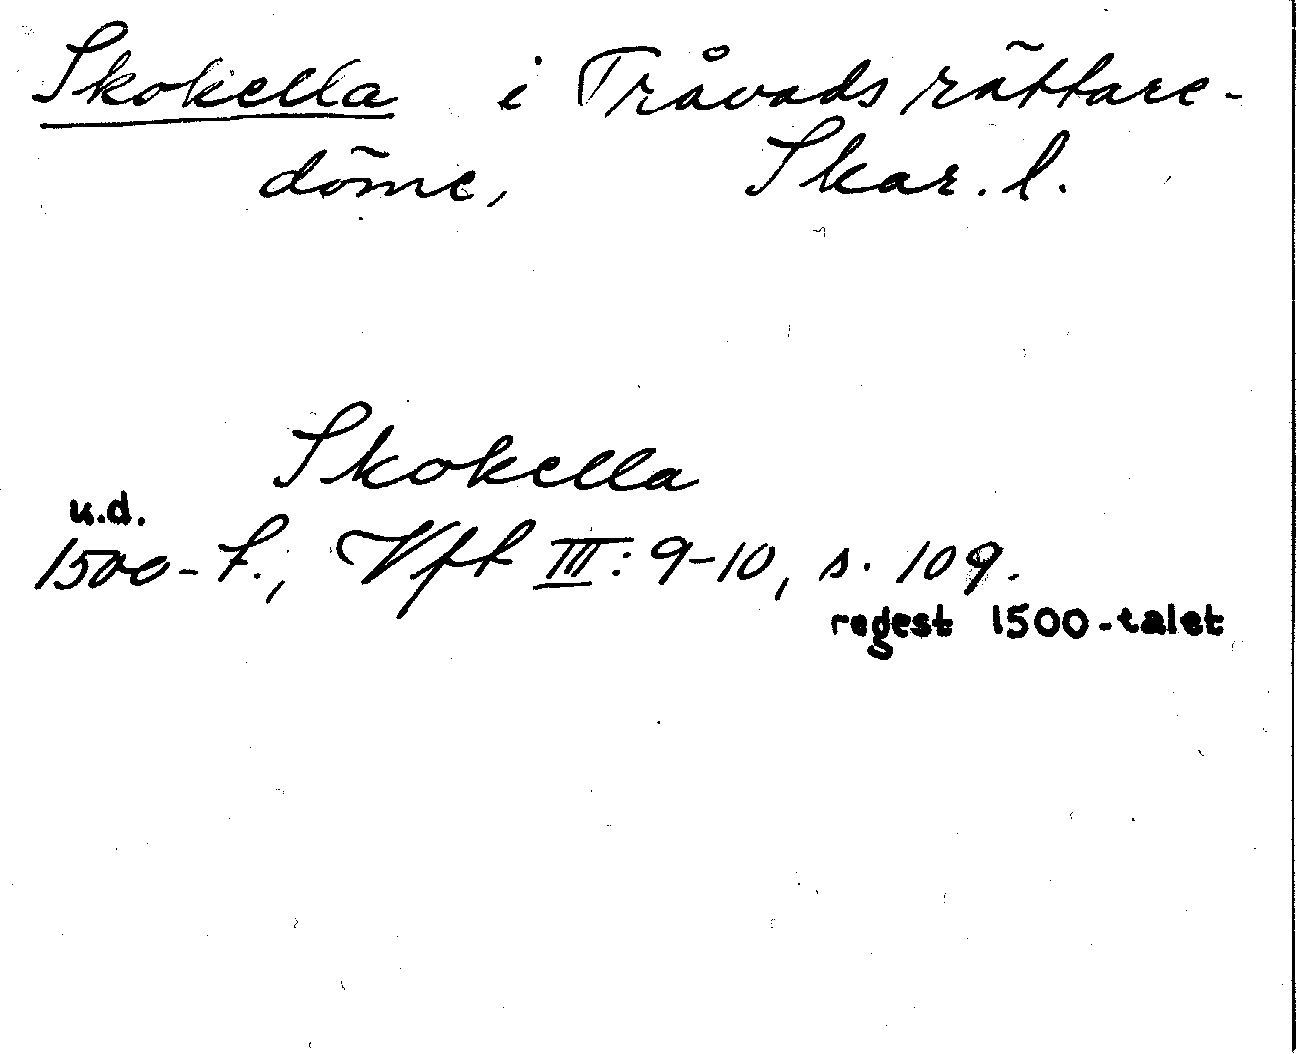 Skokella i Tråvads rättare-
döme, Skar. l.
Skokella
u.d.
1500-t., Vft III: 9-10, s. 109.
regest 1500-talet